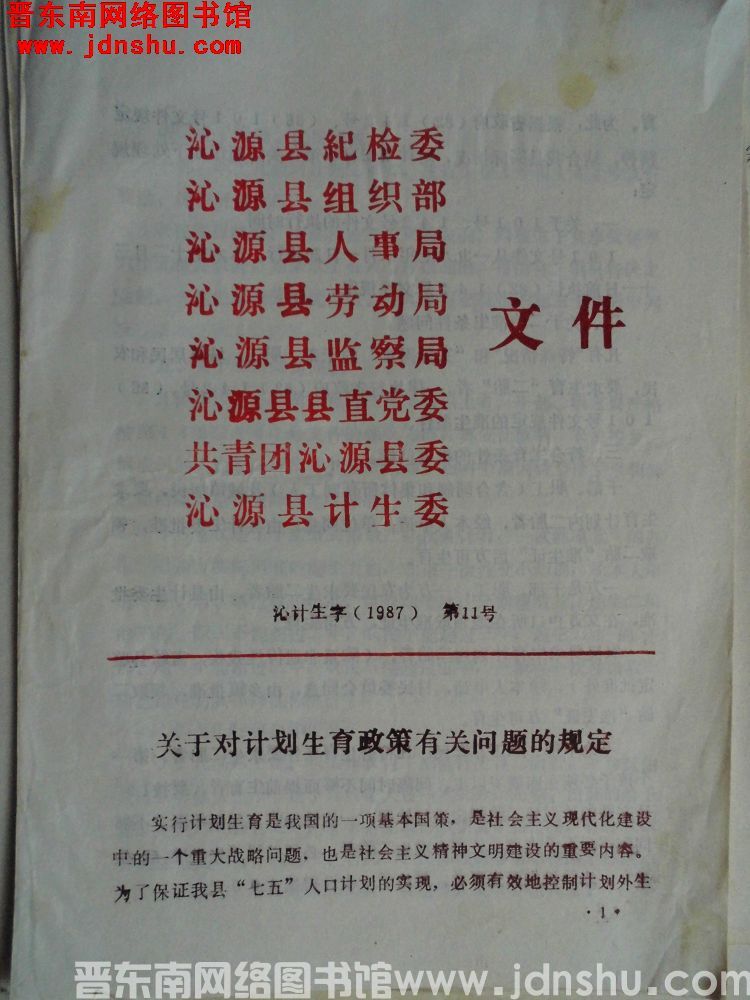 晋东南网络图书馆
www.jdnshu.com
沁源县纪检委
沁源县组织部
沁源县人事局
沁源县劳动局
沁源县监察局
沁源县县直党委
共青团沁源县委
沁源县计生委
文件
沁计生字(1987) 第11号
关于对计划生育政策有关问题的规定
实行计划生育是我国的一项基本国策，是社会主义现代化建设
中的一个重大战略问题，也是社会主义精神文明建设的重要内容。
为了保证我县“七五”人口计划的实现，必须有效地控制计划外生
·1·
晋东南网络图书馆www.jdnshu.com